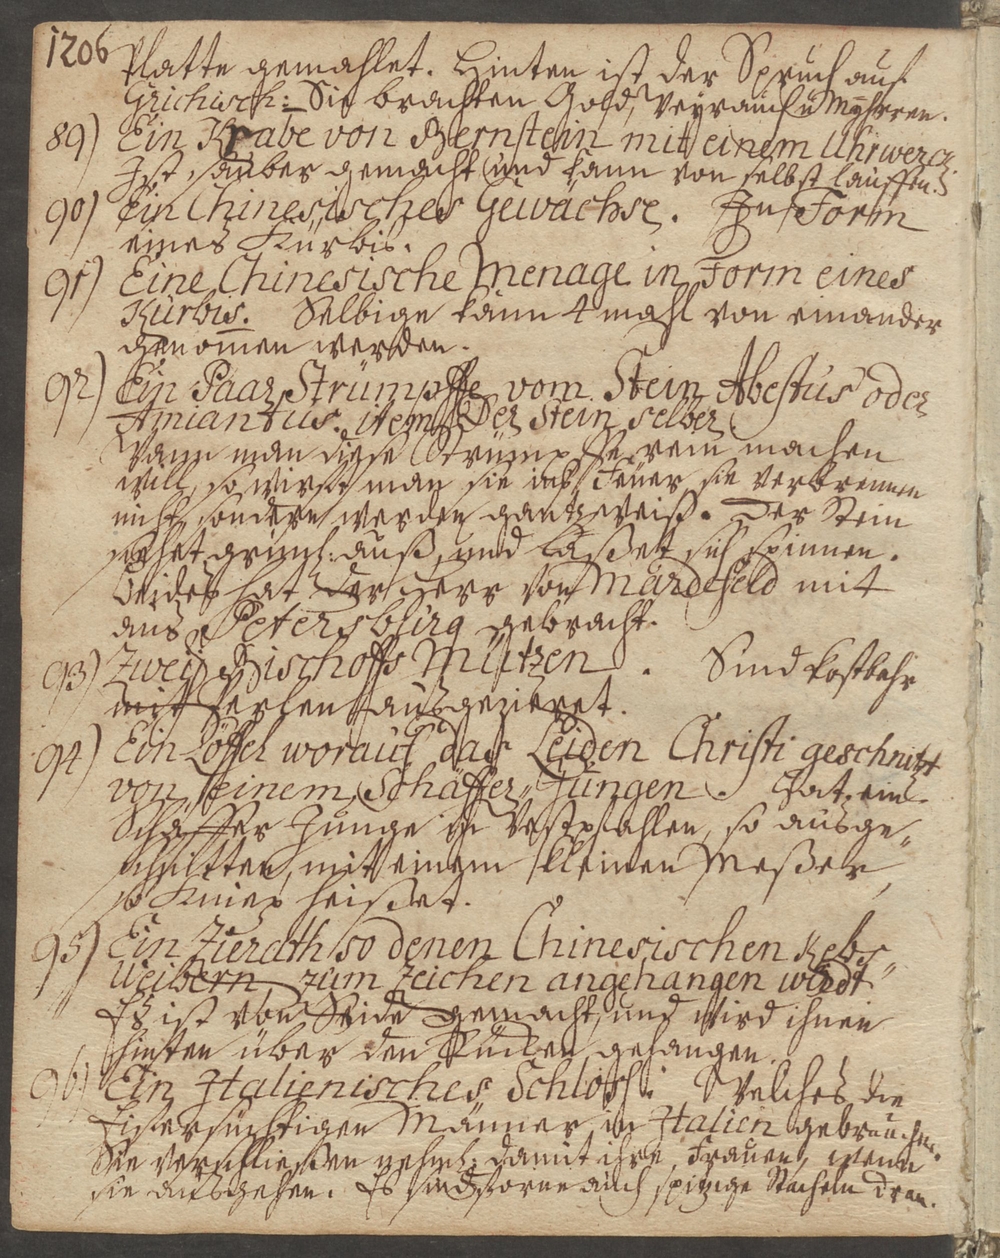 1206
Platte gemahlet. Hinten ist der Spruch auf
Grichisch: Sie brachten Gold, Weyrauch u Myhrren.
89) Ein Krabe von Bernstein mit einem Uhrwerck
Ist sauber gemacht und kann von selbst lauffen.
90) Ein Chinesisches Gewächse. In Form
eines Kürbis.
91) Eine Chinesische Menage in Form eines
Kürbis. Selbige kann 4 mahl von einander
genom̄en werden.
92) Ein Paar Strümpffe vom Stein Abestus oder
Amiantus. item Der Stein selber
Wann man diese Strümpffe rein machen
will, so wirft man sie ins Feuer, sie verbrennen
nicht, sondern werden gantz weiß. Der Stein
siehet grünl: auß, und läßet sich spinnen.
Beides hat der Herr von Mardefeld mit
aus Petersburg gebracht.
93) Zweij Bischoffs Mützen. Sind kostbahr
mit Perlen ausgezieret.
94) Ein Löffel worauf das Leiden Christi geschnitzt
von einem Schäffer-Jungen. Hat ein
Schäffer Junge in Westphahlen, so ausge-
schnitten, mit einem kleinen Meßer,
so Knief heißet.
95) Ein Zierath so denen Chinesischen Kebs-
Weibern zum Zeichen angehangen wirdt
Es ist von Seide gemacht, und wird ihnen
hinten über den Rücken gehangen.
96) Ein Italienisches Schloß: Welches die
Eifersüchtigen Männer in Italien gebrauchen.
Sie verschließen nehml: damit ihre Frauen, wenn
sie ausgehen. Es sind vorne auch spitzige Stacheln dran.